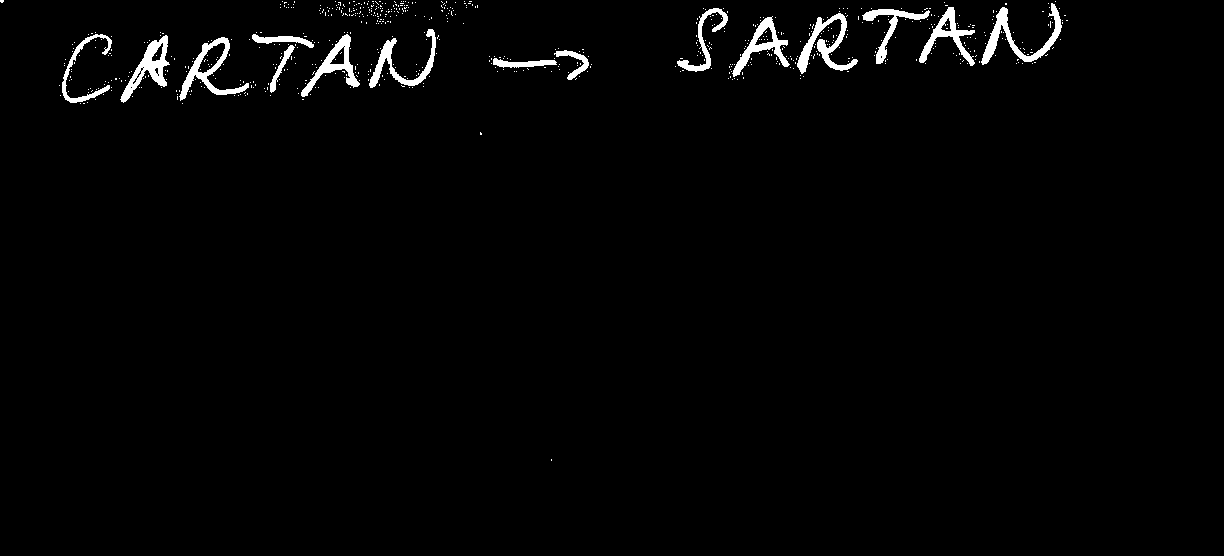 CARTAN → SARTAN